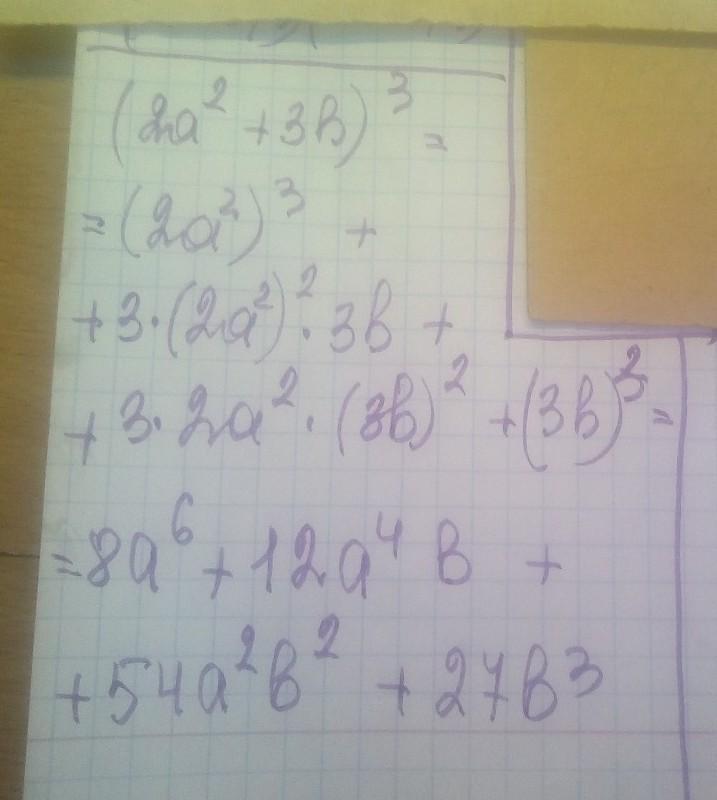 (2a² + 3b)³ =
= (2a²)³ +
+ 3·(2a²)²·3b +
+ 3·2a²·(3b)² + (3b)³ =
= 8a⁶ + 12a⁴b +
+ 54a²b² + 27b³